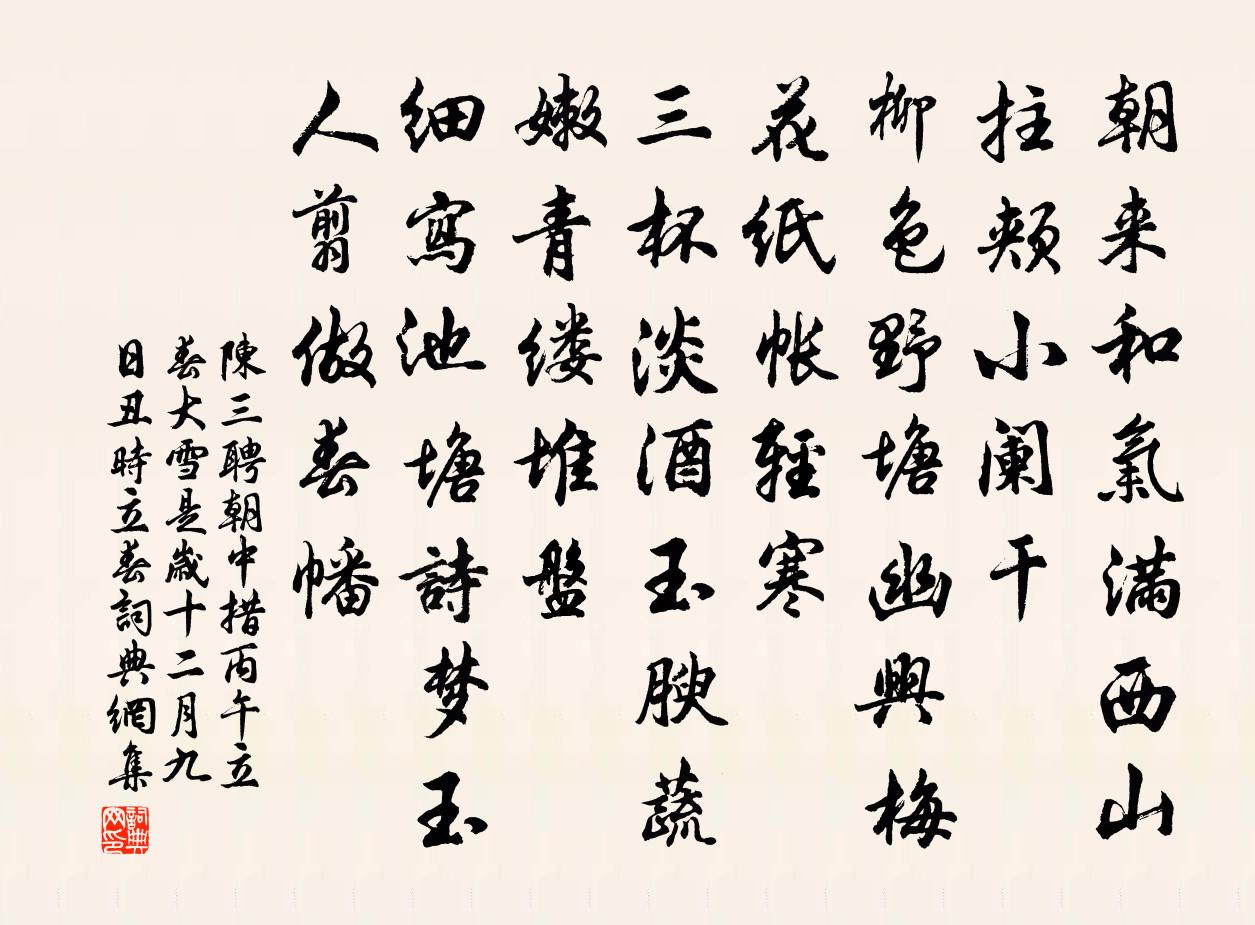 朝来和氣滿西山
拄頰小阑干
柳色野塘幽興梅
花纸帐輕寒
三杯淡酒玉腴蔬
嫩青缕堆盤
细寫池塘詩梦玉
人翦做春幡
陳三聘朝中措丙午立
春大雪是歲十二月九
日丑時立春詞典網集
詞典
网印